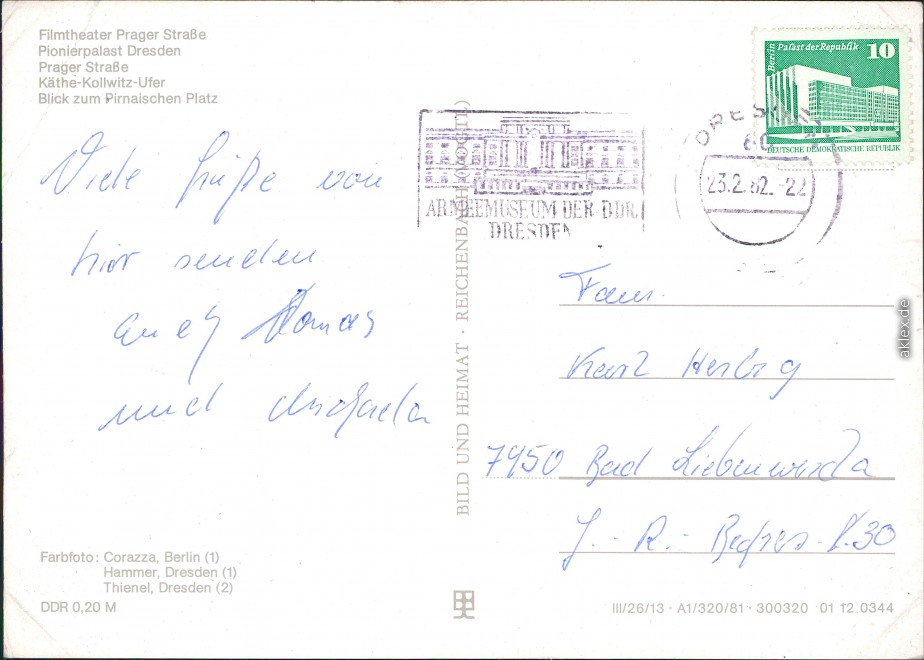 Filmtheater Prager Straße
Pionierpalast Dresden
Prager Straße
Käthe-Kollwitz-Ufer
Blick zum Pirnaischen Platz
Viele Grüße von
hier senden
euch Thomas
und Michaela
Farbfoto: Corazza, Berlin (1)
Hammer, Dresden (1)
Thienel, Dresden (2)
DDR 0,20 M
BILD UND HEIMAT · REICHENBACH (VOGTL)
ARMEEMUSEUM DER DDR
DRESDEN
Berlin Palast der Republik 10
DEUTSCHE DEMOKRATISCHE REPUBLIK
DRESDEN
23.2.82.-22
Fam.
Karl
7950 Bad Liebenwerda
J.- R.- Becher-
30
III/26/13 · A1/320/81 · 300320 01 12 0344
aklex.de